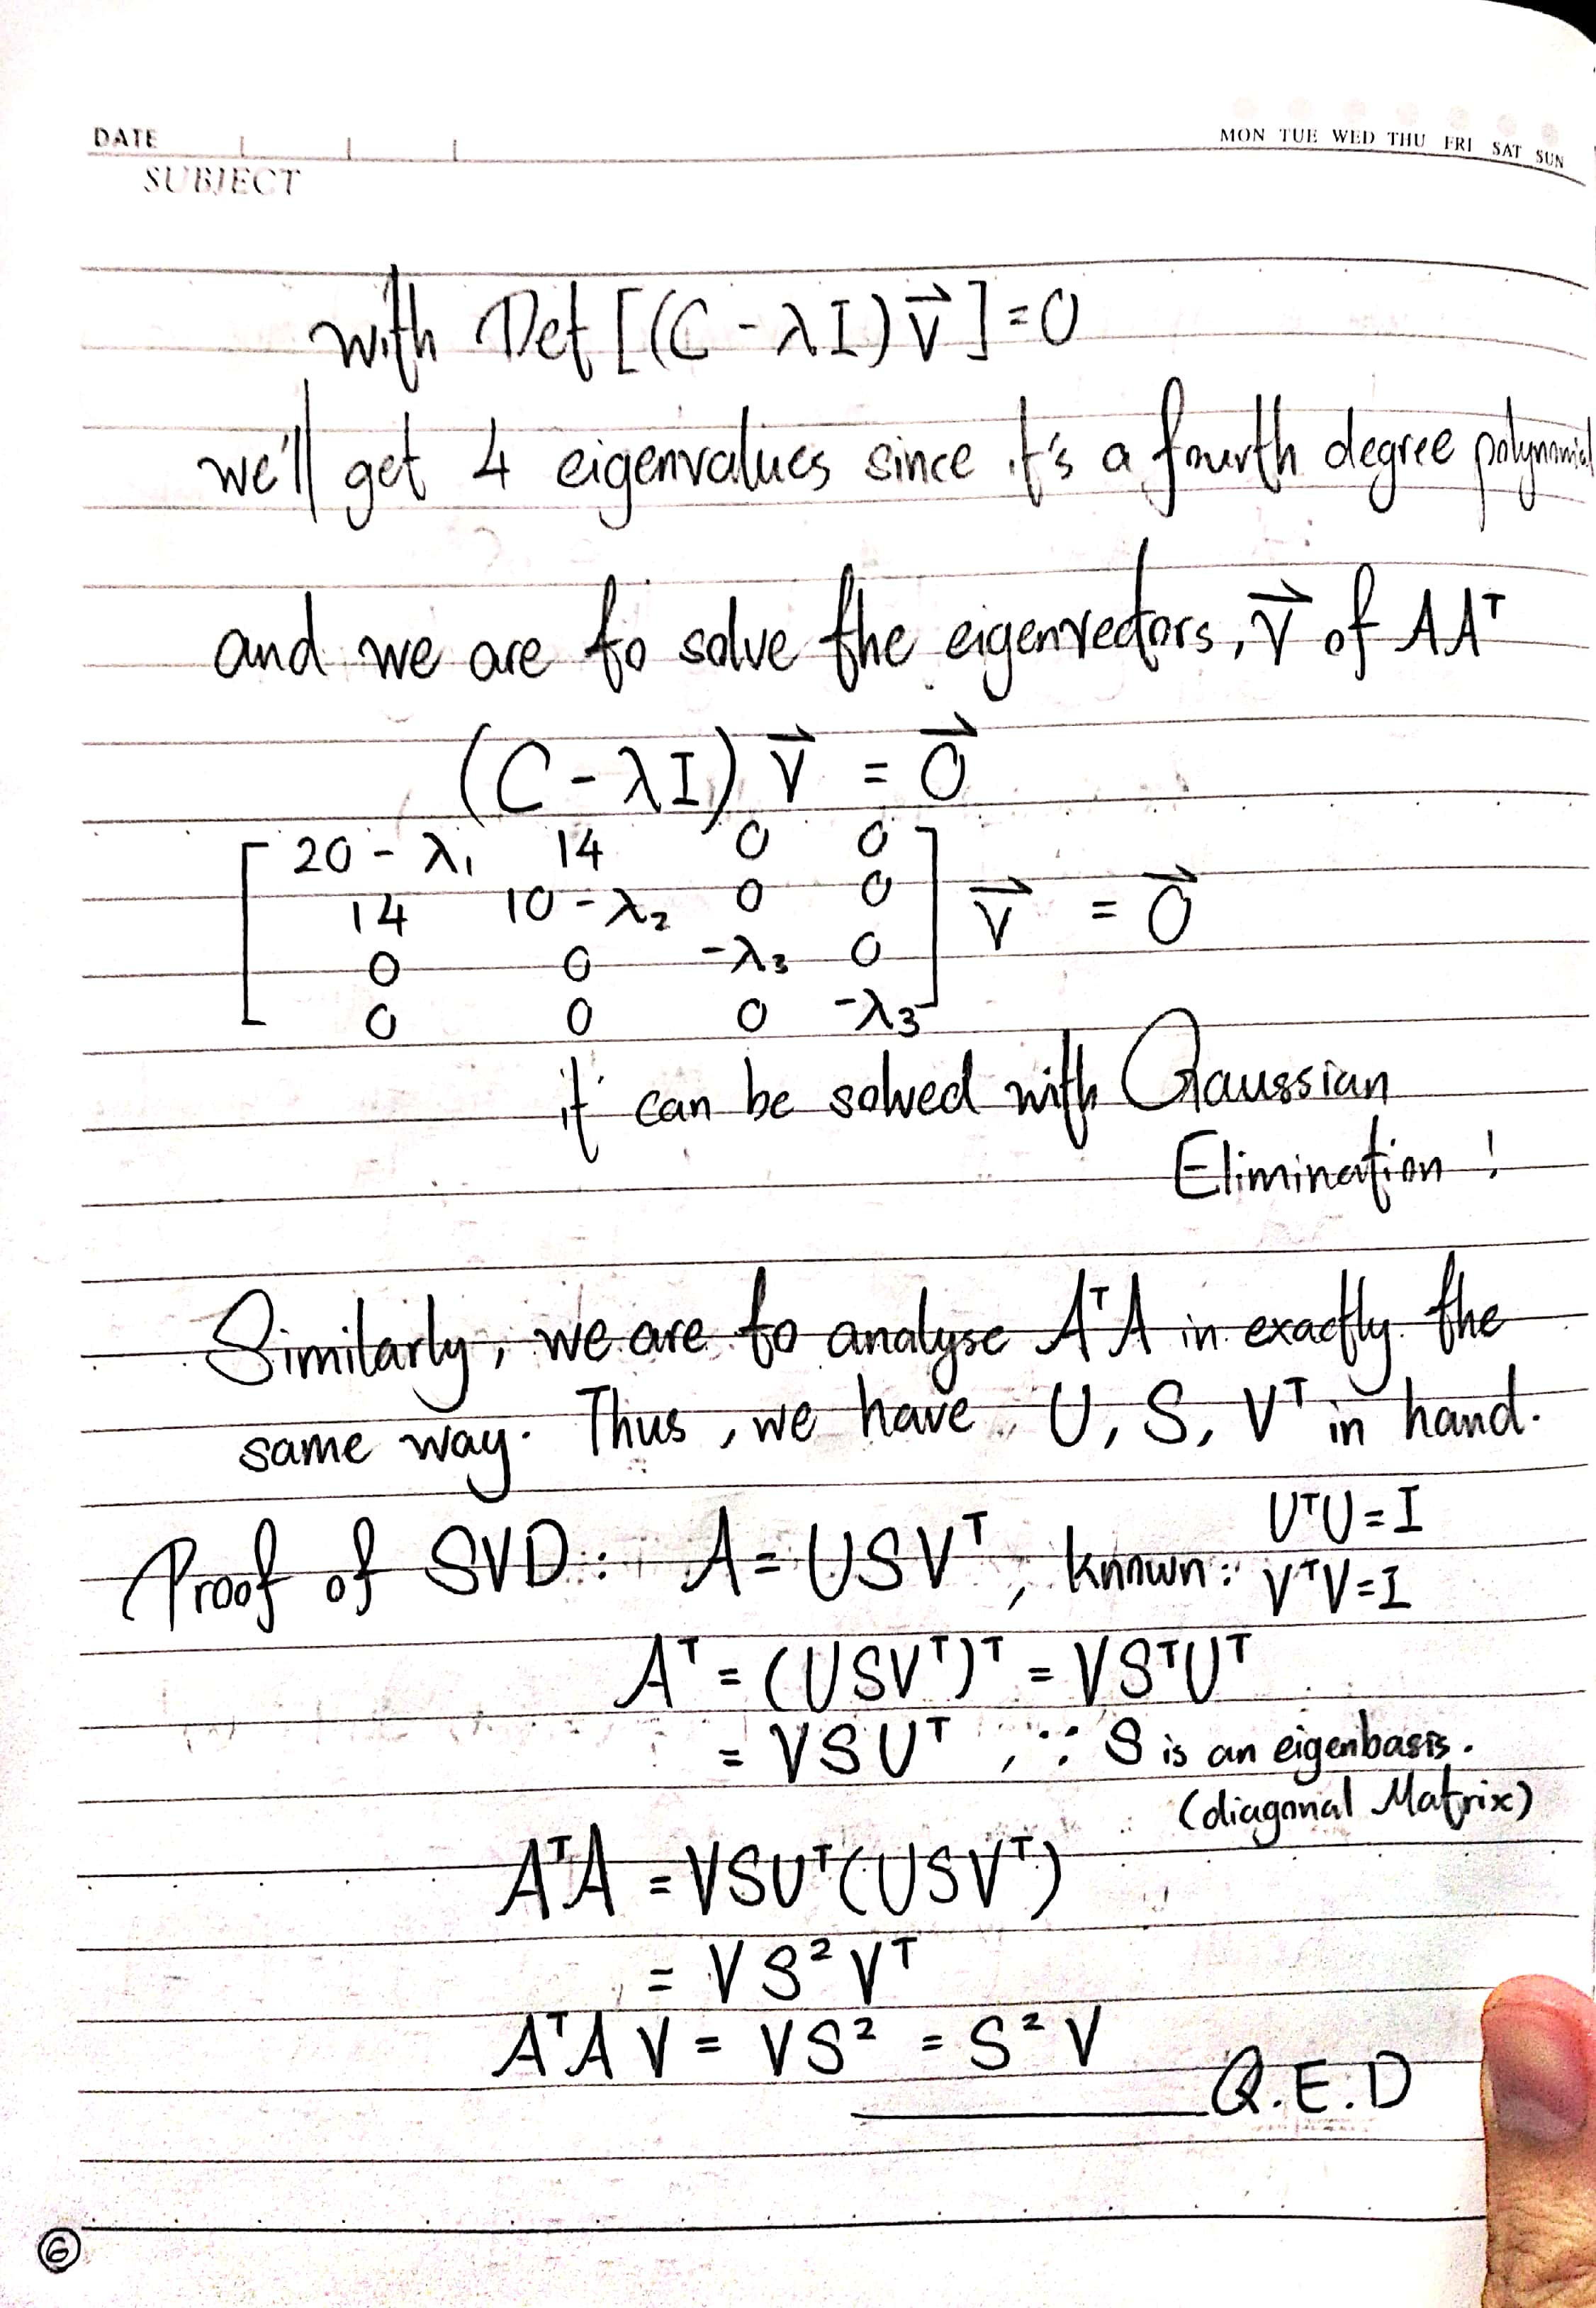 DATE
MON TUE WED THU FRI SAT SUN
SUBJECT
with Det [(C - λI) v⃗ ] = 0
we'll get 4 eigenvalues since it's a fourth degree polynomial
and we are to solve the eigenvectors, v⃗ of AAᵀ
(C - λI) v⃗ = 0⃗
[ 20 - λ₁ 14 0 0
14 10 - λ₂ 0 0
0 0 -λ₃ 0
0 0 0 -λ₃ ] v⃗ = 0⃗
it can be solved with Gaussian
Elimination !
Similarly, we are to analyse AᵀA in exactly the
same way. Thus, we have U, S, Vᵀ in hand.
Proof of SVD: A = USVᵀ, known: UᵀU = I
VᵀV = I
Aᵀ = (USVᵀ)ᵀ = VSᵀUᵀ
= VSUᵀ, ∵ S is an eigenbasis.
(diagonal Matrix)
AᵀA = VSUᵀ(USVᵀ)
= VS²Vᵀ
AᵀAV = VS² = S²V
Q.E.D
6